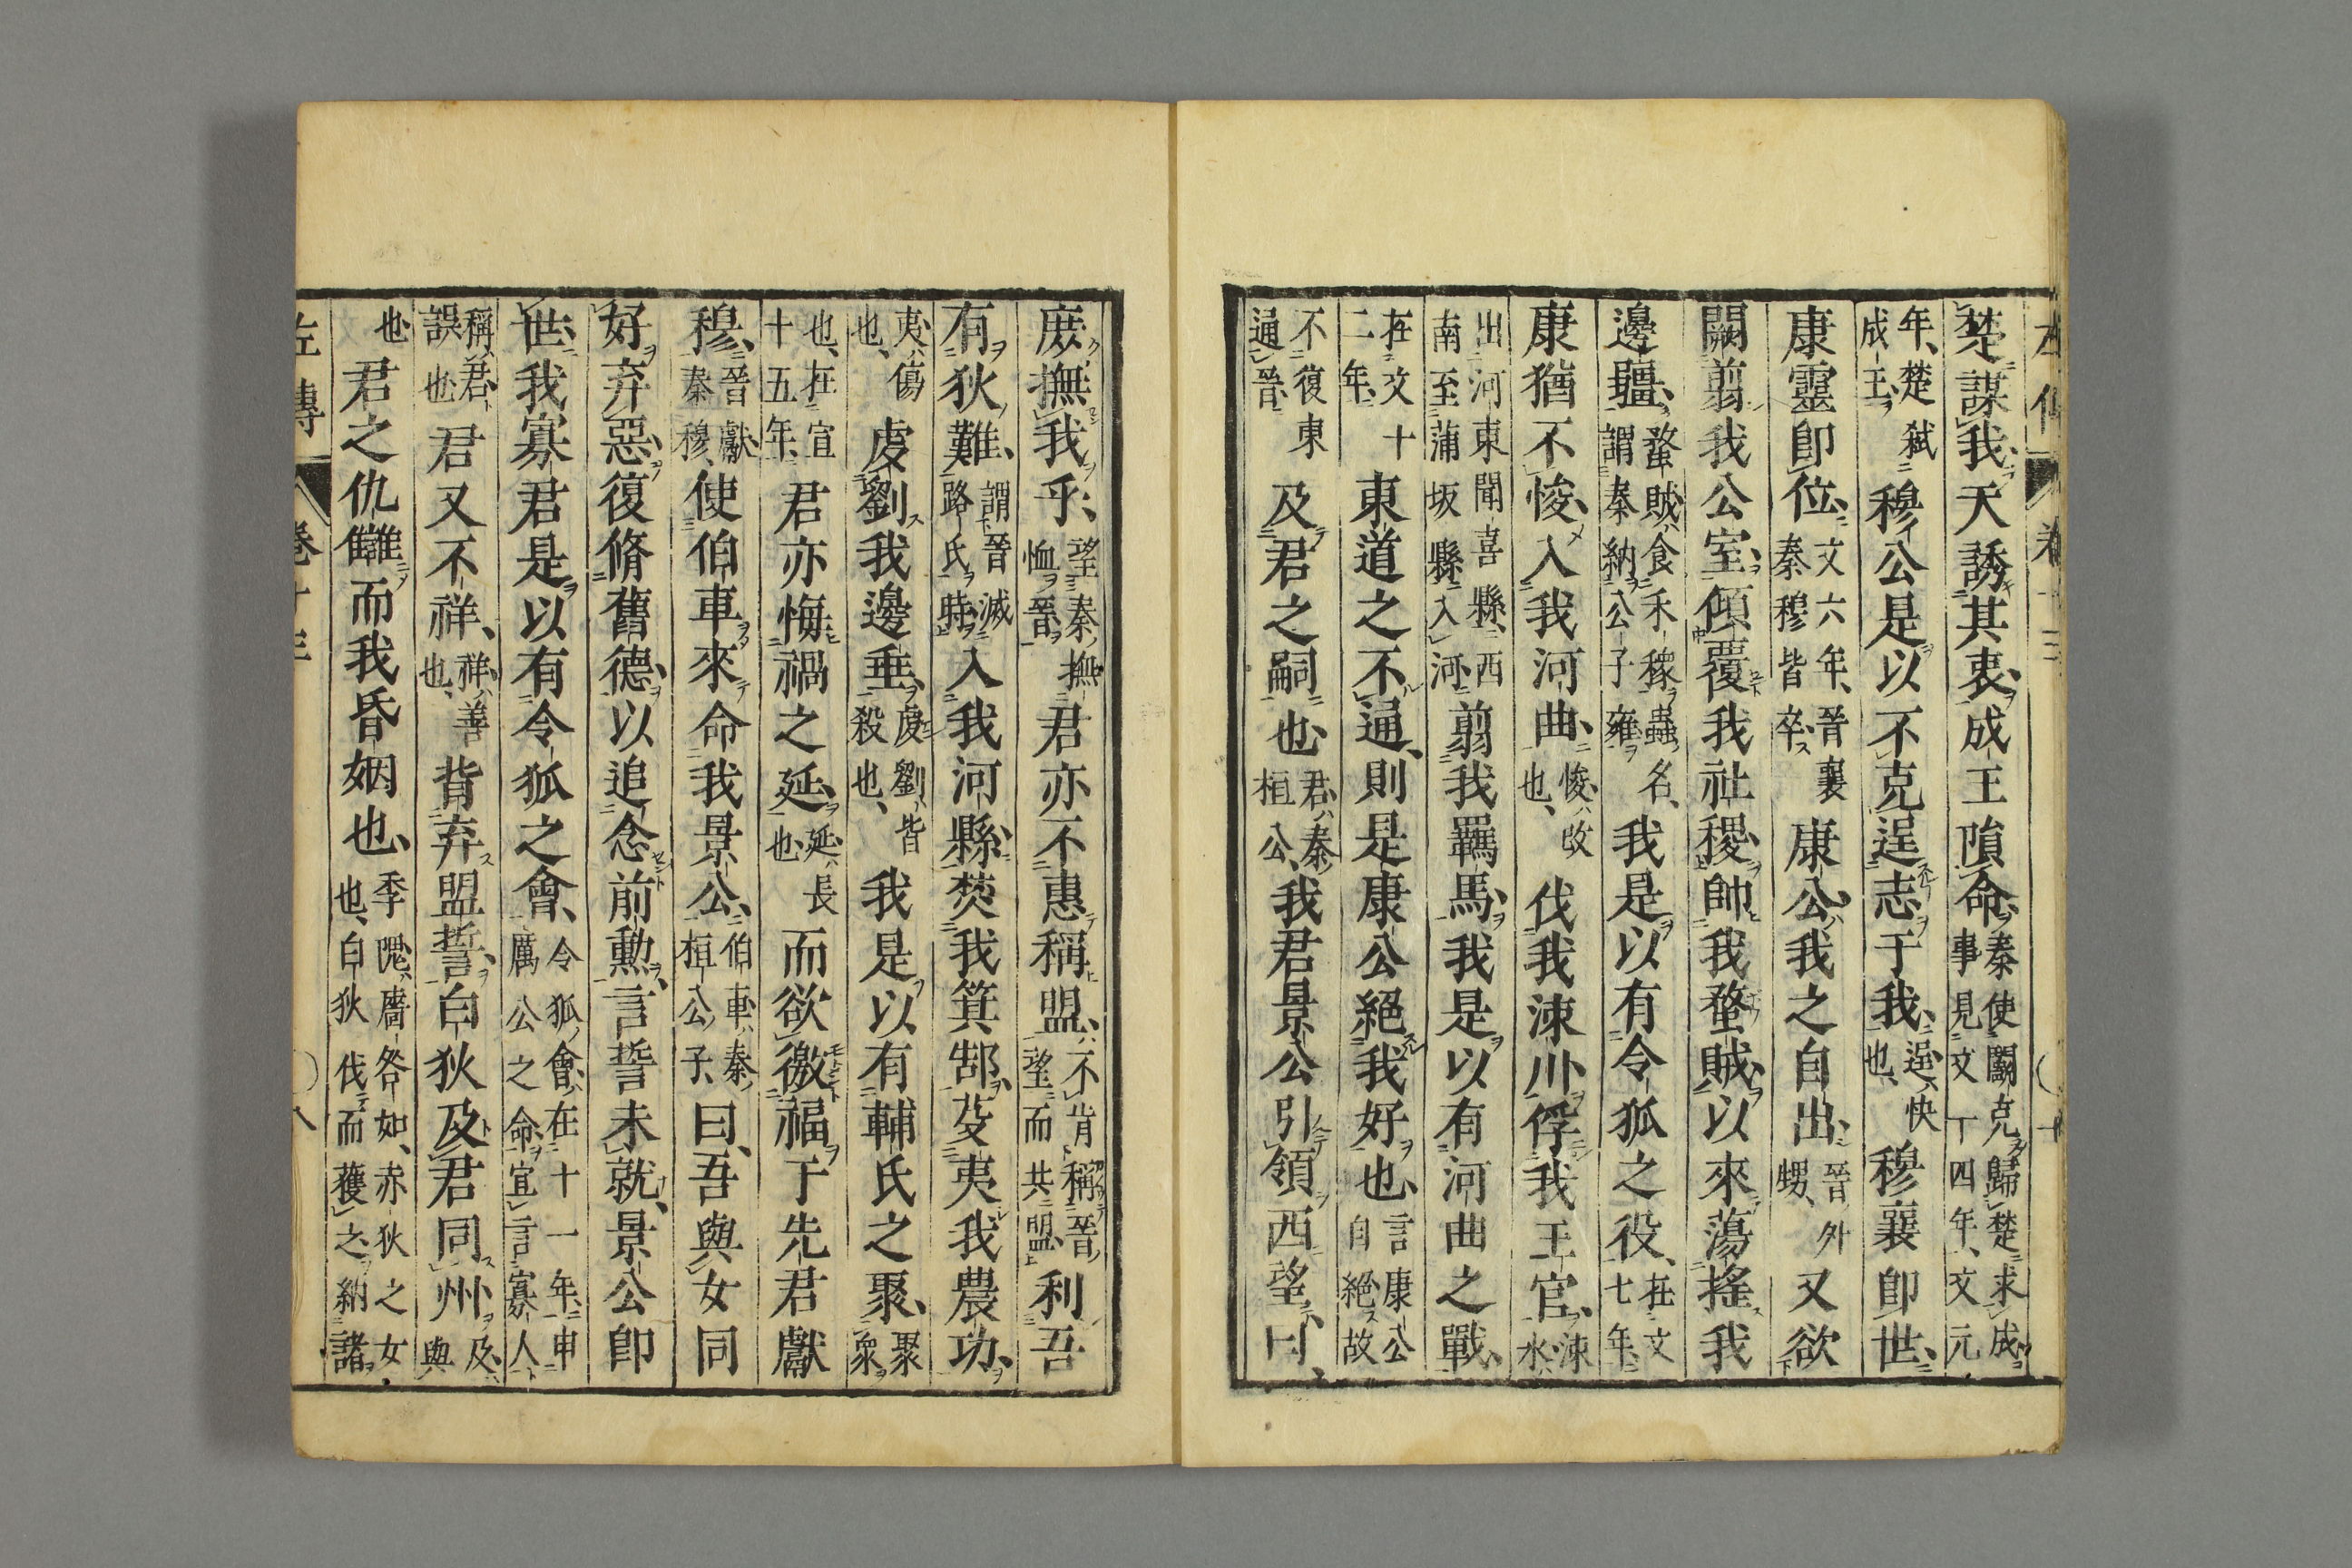 楚謀我天誘其衷成王隕命秦使鬬克歸楚求成事見文十四年文元
年楚弑成王穆公是以不克逞志于我逞快也穆襄即世
康靈即位文六年晉襄秦穆皆卒康公我之自出晉外甥又欲
闕翦我公室傾覆我社稷帥我蝥賊以來蕩搖我
邊疆蝥賊食禾稼蟲名謂秦納公子雍我是以有令狐之役在文七年
康猶不悛入我河曲悛改也伐我涑川俘我王官涑水
出河東聞喜縣西南至蒲坂縣入河翦我羈馬我是以有河曲之戰
在文十二年東道之不通則是康公絕我好也言康公自絕故
不復東通晉及君之嗣也君秦桓公我君景公引領西望曰
庶撫我乎望秦撫恤晉君亦不惠稱盟不肯稱晉望而共盟利吾
有狄難謂晉滅路氏時入我河縣焚我箕郜芟夷我農功
夷傷也虔劉我邊垂虔劉皆殺也我是以有輔氏之聚聚衆
也在宣十五年君亦悔禍之延延長也而欲徼福于先君獻
穆晉獻秦穆使伯車來命我景公伯車秦桓公子曰吾與女同
好弃惡復脩舊德以追念前勳言誓未就景公即
世我寡君是以有令狐之會令狐會在十一年申厲公之命宜言寡人
稱君誤也君又不祥祥善也背弃盟誓白狄及君同州及與
也君之仇讎而我昏姻也季隗廧咎如赤狄之女也白狄伐而獲之納諸
左傳
卷十三
八